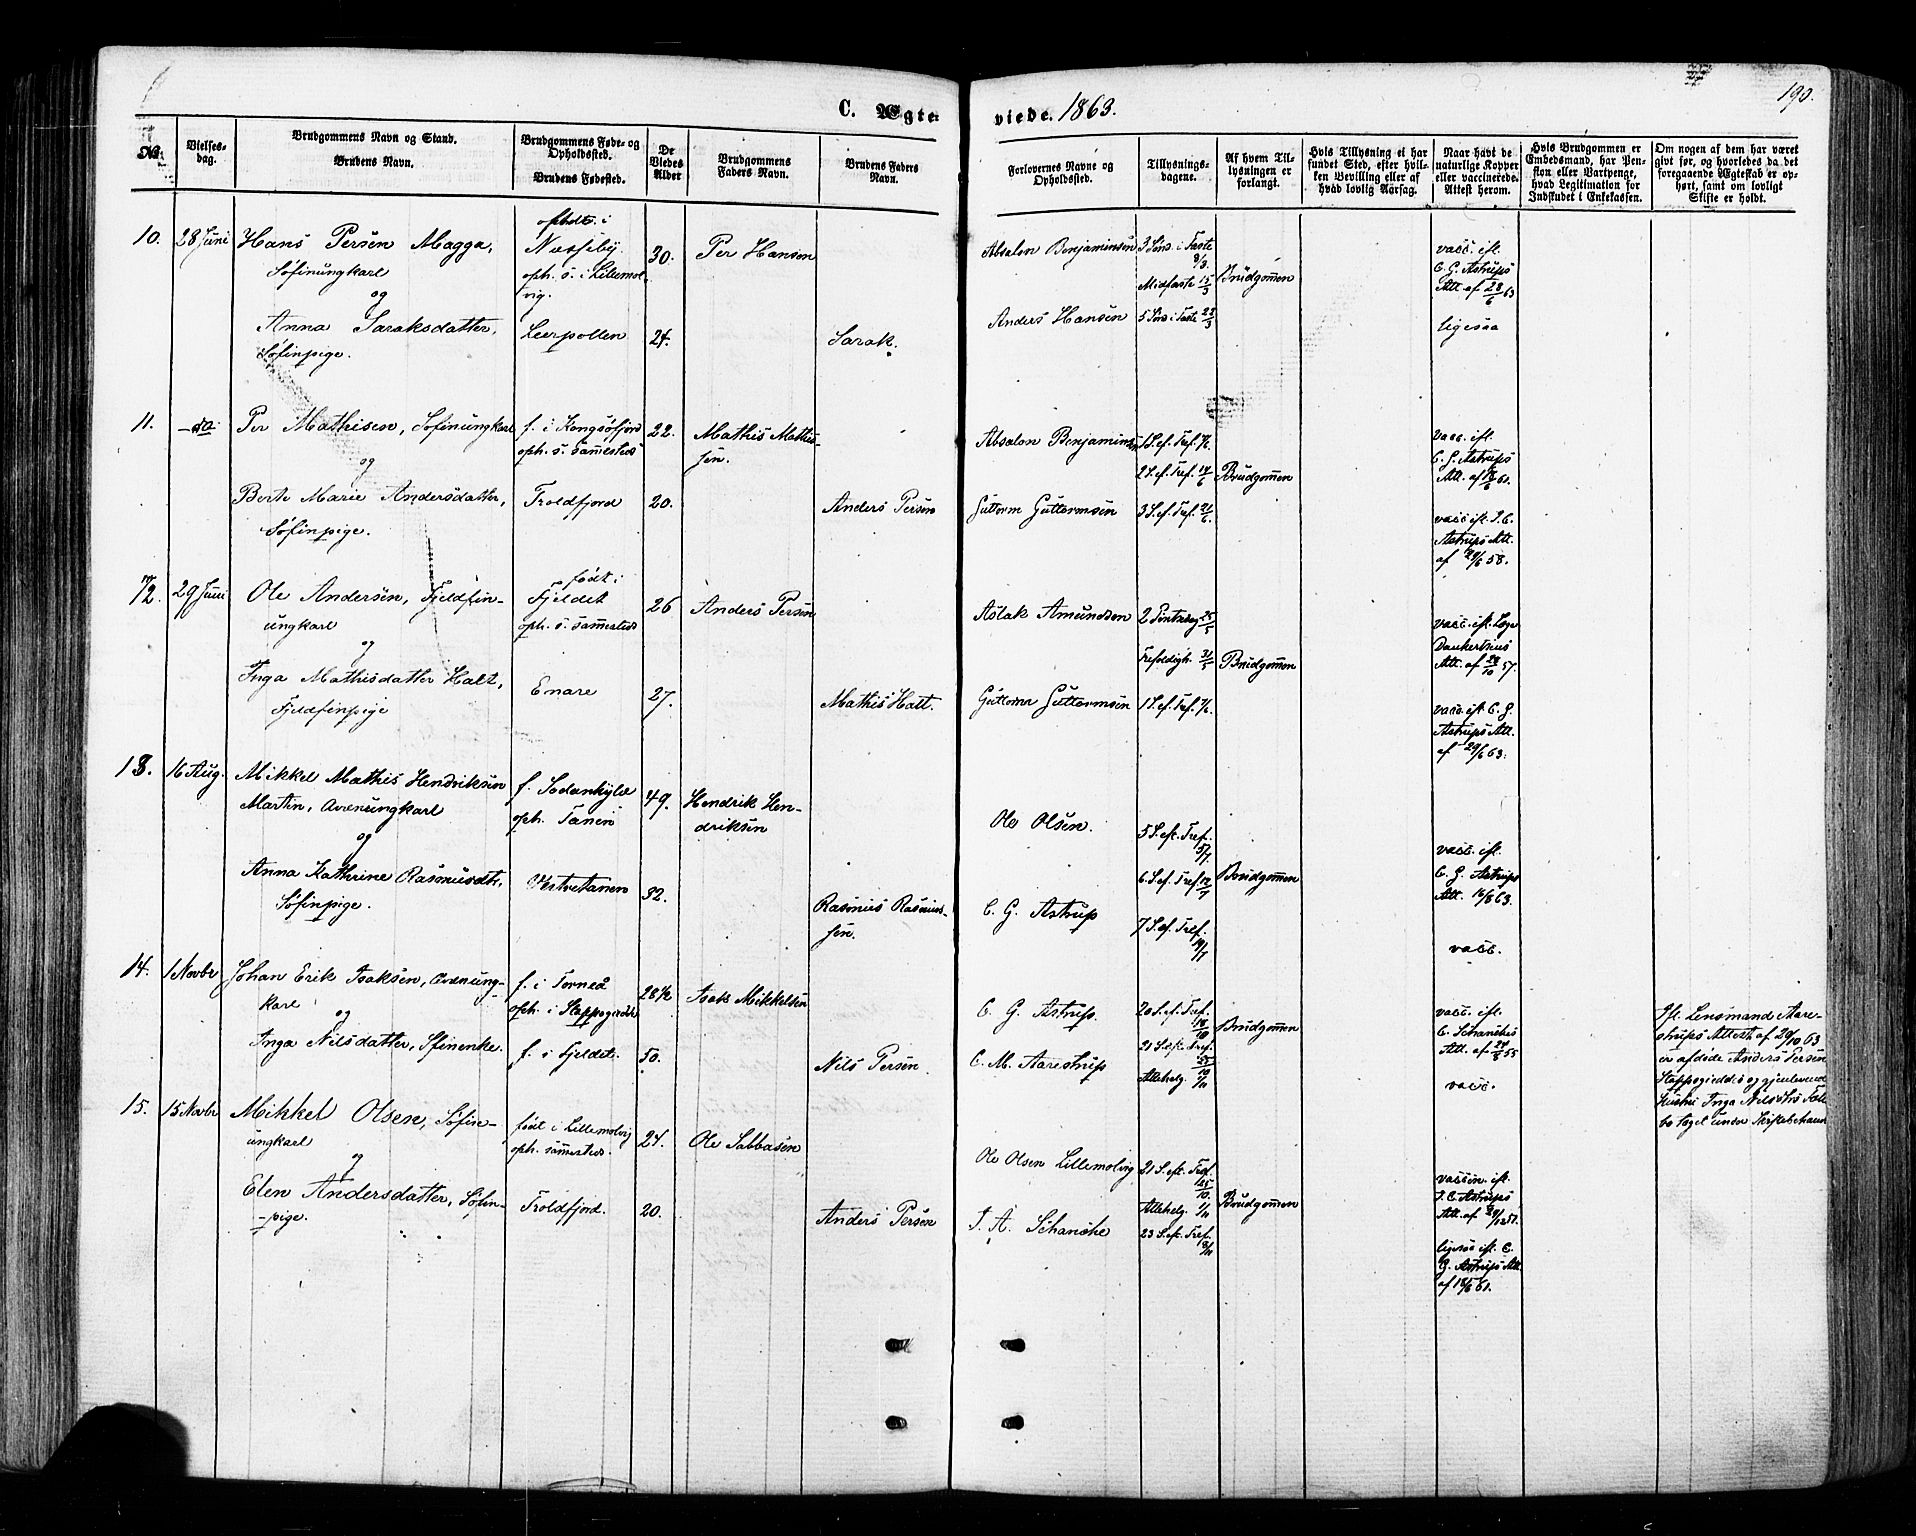 C. Ægteviede. 1863.
190.
№
Vielsesdag.
Brudgommens Navn og Stand.
Brudens Navn.
Brudgommens Føde- og Opholdssted.
Brudens Fødested.
De Viedes Alder
Brudgommens Faders Navn.
Brudens Faders Navn.
Forlovernes Navne og Opholdssted.
Tillysningsdagene.
Af hvem Tillysningen er forlangt.
Hvis Tillysning ei har fundet Sted, efter hvilken Bevilling eller af hvad lovlig Aarsag.
Naar havt de naturlige Kopper eller vaccinerede. Attest herom.
Hvis Brudgommen er Embedsmand, har Pension eller Vartpenge, hvad Legitimation for Indskudet i Enkekassen.
Om nogen af dem har været givt før, og hvorledes da det foregaaende Ægteskab er ophørt, samt om lovligt Skifte er holdt.
10. 28 Juni
Hans Persen Magga,
Søfinungkarl
og
Anna Saraksdatter,
Søfinpige.
Næsseby.
oph. s. i Lillemolvig.
Leerpollen
30.
24.
Per Hansen
Sarak.
Absalon Benjaminsen
Anders Hansen
3 Søns. i Faste 8/3.
Midfaste 15/3
5 Søns. i Faste 22/3
Brudgommen
vacc. ifl.
C. G. Astrups
Att. af 28/6 63
ligesaa
11. -do-
Per Mathisen, Søfinungkarl
og
Berte Marie Andersdatter,
Søfinpige.
f. i Kongsøfjord
oph. s. sammesteds
Troldfjord
22.
20.
Mathis Mathissen.
Anders Persen
Absalon Benjaminsen
Guttorm Guttormsen
1 S. ef. Tref. 7/6.
2 S. ef. Tref. 14/6
3 S. ef. Tref. 21/6.
Brudgommen
vacc. ifl.
C. G. Astrups
Att. af
vacc. ifl. J. C.
Astrups Att.
af 29/6 58.
12. 29 Juni
Ole Andersen, Fjeldfinungkarl
og
Inga Mathisdatter Halt,
Fjeldfinpige
født i
Fjeldet
oph. s. sammesteds
Enare
26
27.
Anders Persen
Mathis Halt.
Aslak Amundsen
Guttorm Guttormsen
2 Pintsedag 25/5
Trefoldigh. 31/5
1 S. ef. Tref. 7/6.
Brudgommen
vacc. ifl. Læge
Dankertsens
Att. af 28/10 57.
vacc. ifl. C. G.
Astrups Att.
af 29/6 63.
13. 16 Aug.
Mikkel Mathis Hendriksen
Martin, Qvænungkarl
og
Anna Kathrine Rasmusdtr,
Søfinpige.
f. Sodankylæ
oph. Tanen
Vestretanen
49.
32.
Hendrik Hendriksen
Rasmus Rasmussen.
Ole Olsen.
C. G. Astrup
5 S. eft. Tref. 5/7.
6 S. ef. Tref. 12/7
7 S. ef. Tref. 19/7
Brudgommen
vacc. ifl.
C. G. Astrups
Att. 16/8 63.
vacc.
14. 1 Novbr
Johan Erik Isaksen, Qvænungkarl
og
Inga Nilsdatter, Sfinenke.
f. i Torneå
oph. i Stappogiedde
f. i Fjeldet.
28½
50.
Isak Mikkelsen
Nils Persen.
C. G. Astrup.
C. M. Aarestrup
20 S. ef. Tref. 18/10
21 S. eft. Tref. 25/10
Allehelg. 1/11
Brudgommen
vacc. ifl.
C. Schanckes
Att. af
vacc.
Ifl. Lensmand Aarestrups Attest af 29/10 63
er afdøde Anders Persen
Stappogieddes og gjenlevende
Hustru Inga Nilsdtrs Fællesbo taget under Skiftebehandl.
15. 15 Novbr
Mikkel Olsen, Søfinungkarl
og
Elen Andersdatter, Søfinpige.
født i Lillemolvig
oph. sammesteds.
Troldfjord.
24.
20.
Ole Sabbasen
Anders Persen
Ole Olsen Lillemolvig
J. A. Schanche
21 S. eft. Tref. 25/10.
Allehelg. 1/11
23 S. eft. Tref. 8/11
Brudgommen
vaccin. ifl.
J. C. Astrups
Att. af
ligesaa ifl. C.
G. Astrups Att.
af 18/6 61.